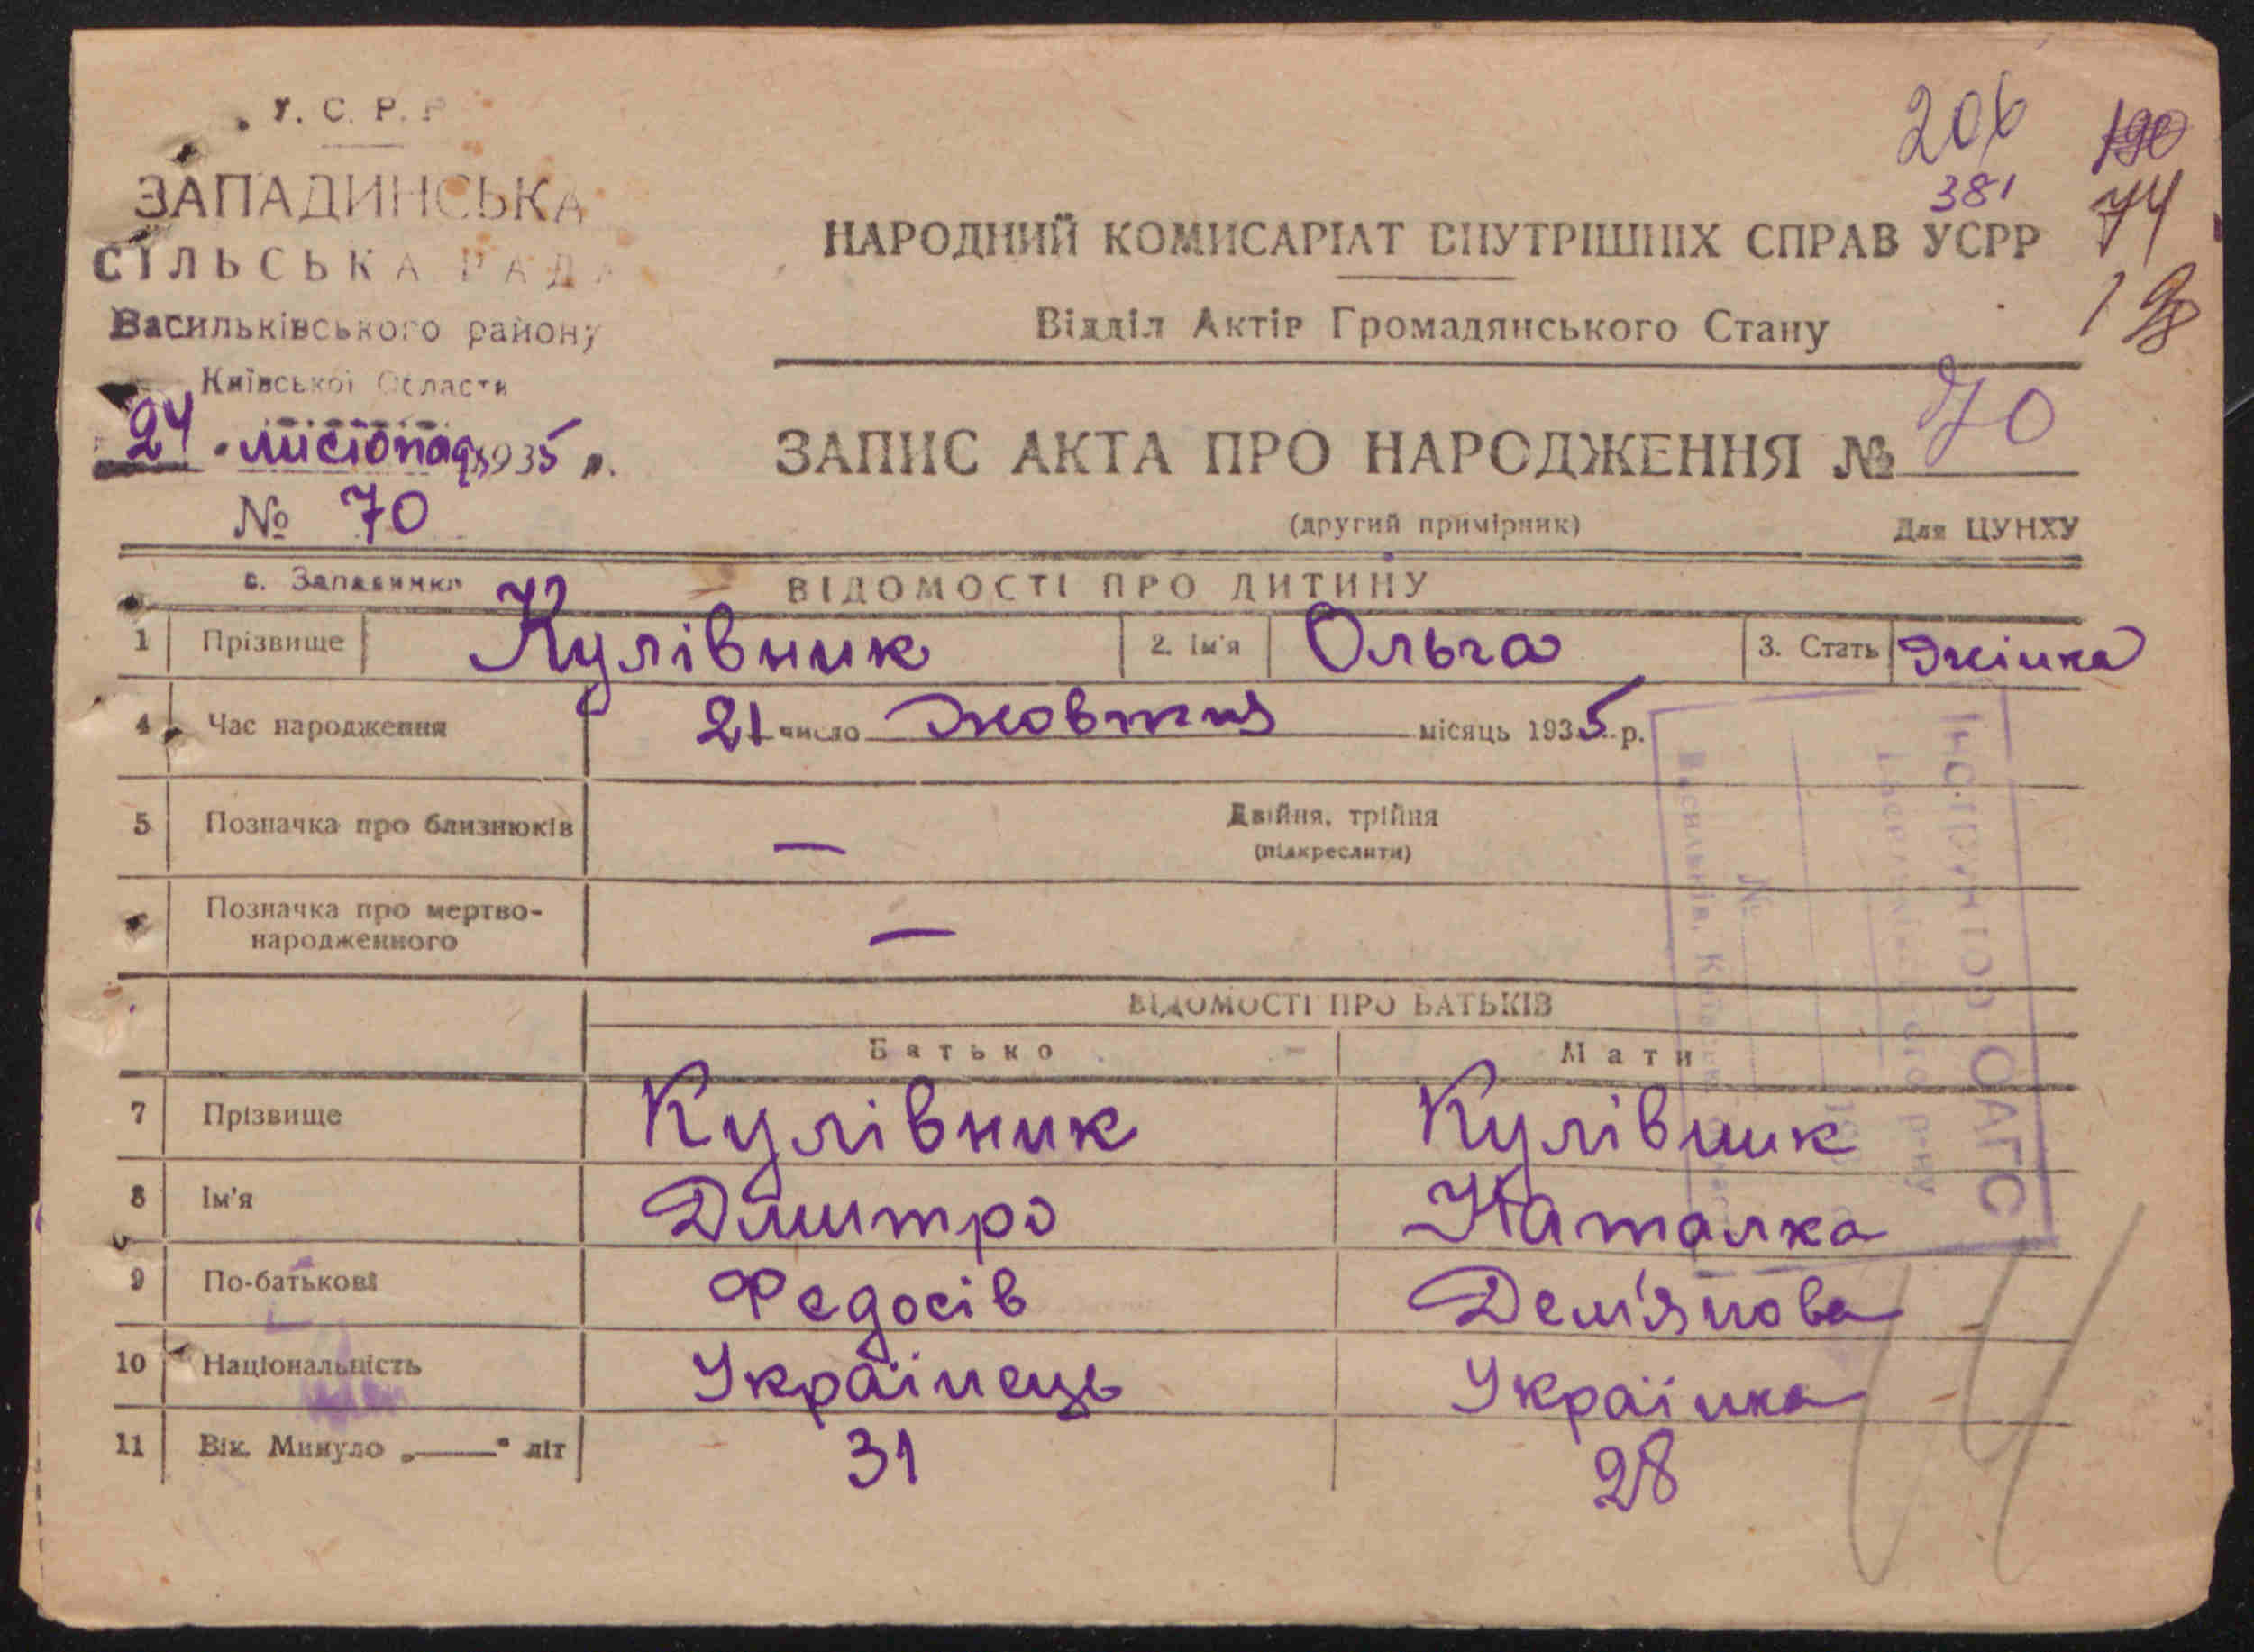 У. С. Р. Р.
ЗАПАДИНСЬКА
СІЛЬСЬКА РАДА
Васильківського району
Київської Области
24 листопад 1935 р.
№ 70
206
190
381
74
НАРОДНИЙ КОМИСАРІАТ ВНУТРІШНІХ СПРАВ УСРР
Відділ Актів Громадянського Стану
ЗАПИС АКТА ПРО НАРОДЖЕННЯ № 70
(другий примірник) Для ЦУНХУ
с. Западинка
ВІДОМОСТІ ПРО ДИТИНУ
1 Прізвище Кулівник 2. Ім'я Ольга 3. Стать Жінка
4 Час народження 21 число Жовтня місяць 1935 р.
5 Позначка про близнюків — Двійня, трійня
(підкреслити)
Позначка про мертво-
народженного —
ВІДОМОСТІ ПРО БАТЬКІВ
Батько Мати
7 Прізвище Кулівник Кулівник
8 Ім'я Дмитро Наталка
9 По-батькові Федосів Дем'янова
10 Національність Українець Українка
11 Вік. Минуло „——“ літ 31 28
Інспектор ОАГС
р-ну
№
Васильків, Київськ